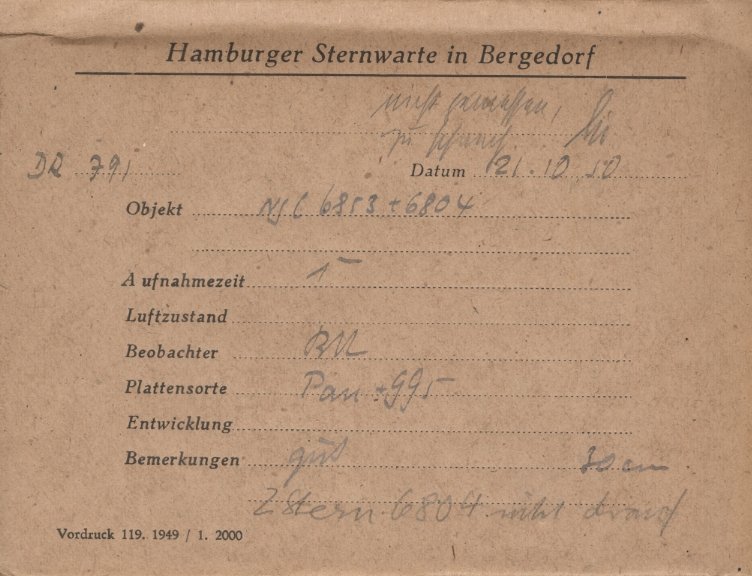 Hamburger Sternwarte in Bergedorf
nicht gemessen,
zu schwach.
DR 791 Datum 21.10.50
Objekt NGC 6853 + 6804
Aufnahmezeit 1
Luftzustand
Beobachter
Plattensorte Pan + GG5
Entwicklung
Bemerkungen gut 30 cm
ZStern 6804 nicht drauf
Vordruck 119. 1949 / 1. 2000